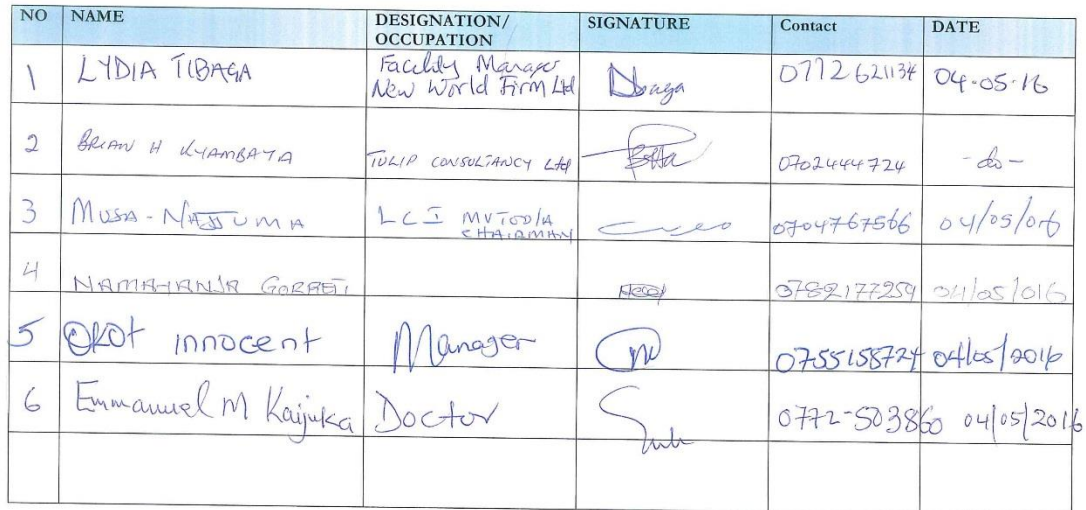 NO NAME DESIGNATION/ OCCUPATION SIGNATURE Contact DATE
1 LYDIA TIBAGA Facility Manager New World Firm Ltd 0772621134 04-05-16
2 BRIAN H KYAMBAYA TULIP CONSULTANCY Ltd 0702444724 -do-
3 MUSA-NAJJUMA LCI CHAIRMAN 0704767566 04/05/016
4 NAMAYANJA GORRETI 0782177259 04/05/016
5 OKOT innocent Manager 0755158724 04/05/2016
6 Emmanuel M Kaijuka Doctor 0772-503860 04/05/2016